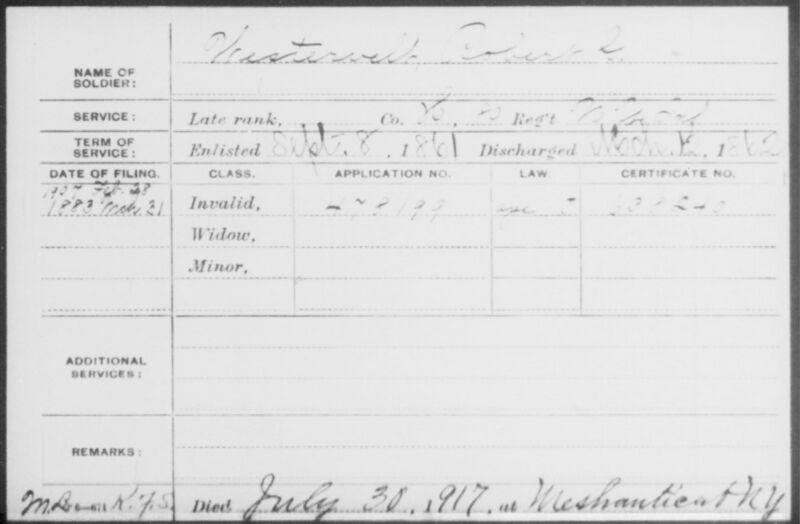 NAME OF SOLDIER: Westervelt, Robert
SERVICE: Late rank, Co. Reg't
TERM OF SERVICE: Enlisted Sept. 8, 1861 Discharged Mch. 12, 1862
DATE OF FILING. CLASS. APPLICATION NO. LAW. CERTIFICATE NO.
1907 Feb. 28
1883 Mch. 21 Invalid, 478199 638240
Widow,
Minor,
ADDITIONAL SERVICES:
REMARKS:
Died July 30, 1917, at NY